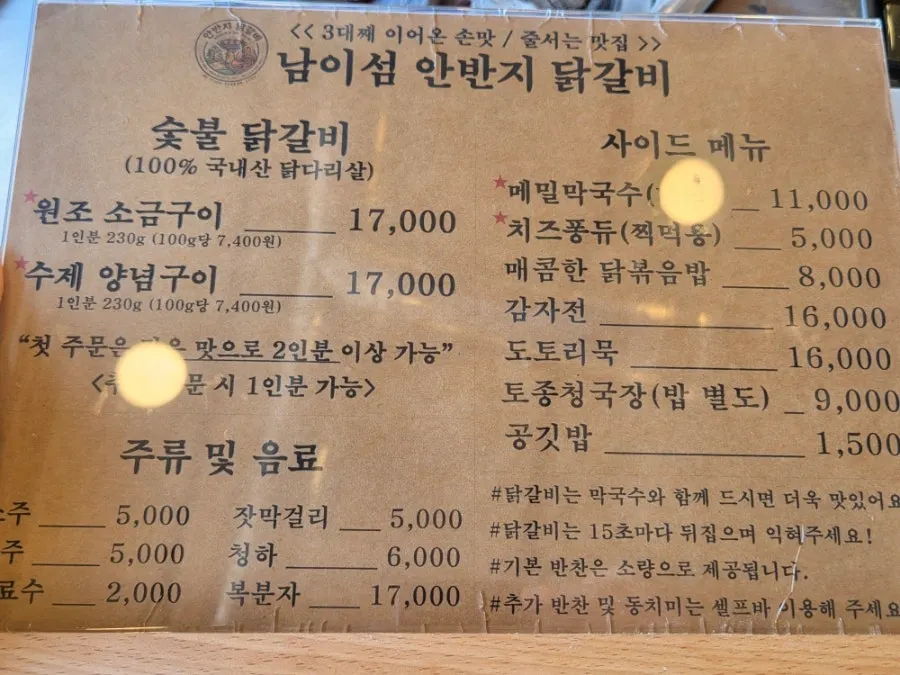 << 3대째 이어온 손맛 / 줄서는 맛집 >>
남이섬 안반지 닭갈비
숯불 닭갈비
(100% 국내산 닭다리살)
★원조 소금구이 17,000
1인분 230g (100g당 7,400원)
★수제 양념구이 17,000
1인분 230g (100g당 7,400원)
"첫 주문은 맛으로 2인분 이상 가능"
시 1인분 가능>
주류 및 음료
5,000
5,000
2,000
잣막걸리 5,000
청하 6,000
복분자 17,000
사이드 메뉴
★메밀막국수( 11,000
★치즈퐁듀(찍먹용) 5,000
매콤한 닭볶음밥 8,000
감자전 16,000
도토리묵 16,000
토종청국장(밥 별도) 9,000
공깃밥 1,500
#닭갈비는 막국수와 함께 드시면 더욱 맛있어요
#닭갈비는 15초마다 뒤집으며 익혀주세요!
#기본 반찬은 소량으로 제공됩니다.
#추가 반찬 및 동치미는 셀프바 이용해 주세요